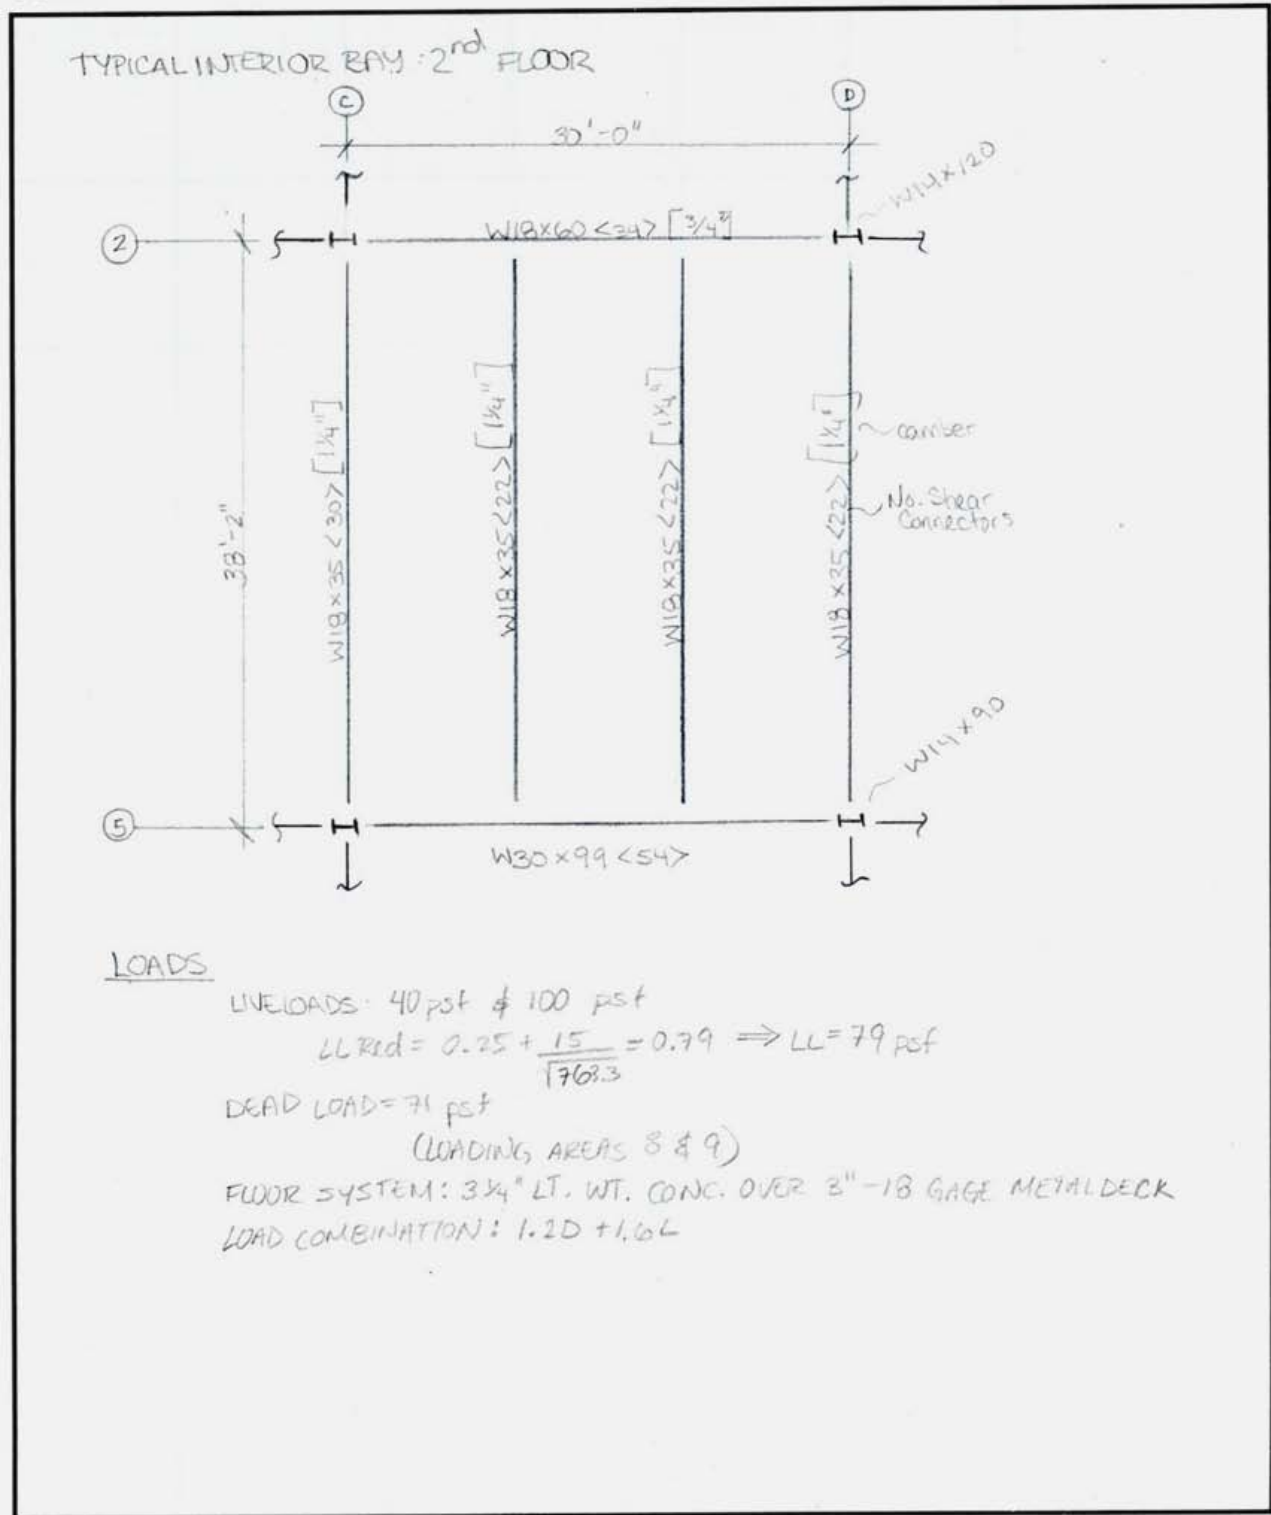 TYPICAL INTERIOR BAY: 2nd FLOOR
C
D
30'-0"
W14×120
2
W18×60 <34> [3/4"]
38'-2"
W18×35 <30> [1¼"]
W18×35 <22> [1¼"]
W18×35 <22> [1¼"]
W18×35 <22> [1¼"]
camber
No. Shear
Connectors
W14×90
5
W30×99 <54>
LOADS
LIVELOADS: 40 psf & 100 psf
LL Red = 0.25 + 15/√763.3 = 0.79 ⇒ LL = 79 psf
DEAD LOAD = 71 psf
(LOADING AREAS 8 & 9)
FLOOR SYSTEM: 3¼" LT. WT. CONC. OVER 3"-18 GAGE METAL DECK
LOAD COMBINATION: 1.2D + 1.6L